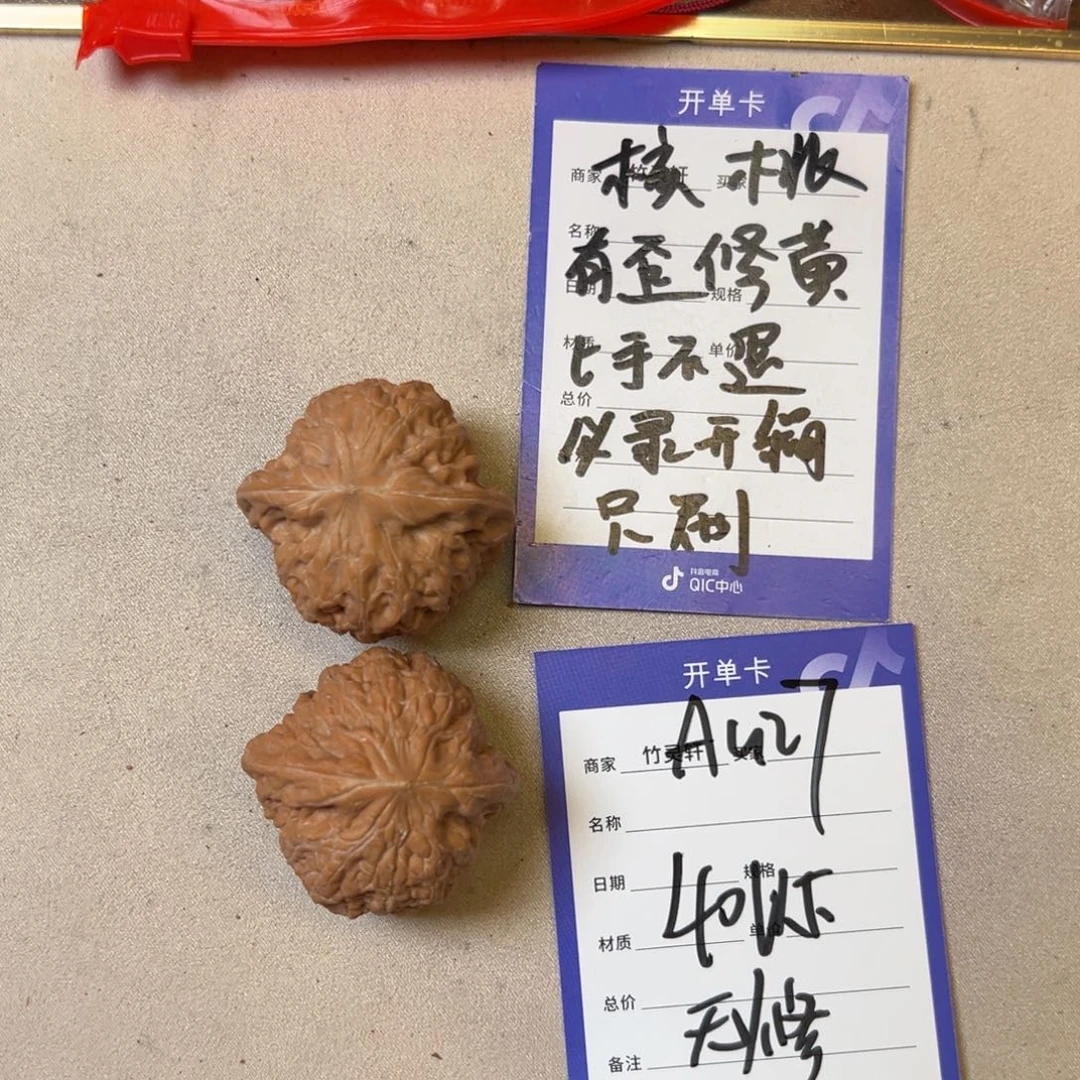 开单卡
核桃
商家 竹灵轩 买家
名称
有歪修黄
日期 规格
上手不退
材质 单价
总价
必录开箱
只刷
抖音电商
QIC中心
开单卡
A427
商家 竹灵轩 买家
名称
日期 规格
40
材质 单价
总价
无修
备注